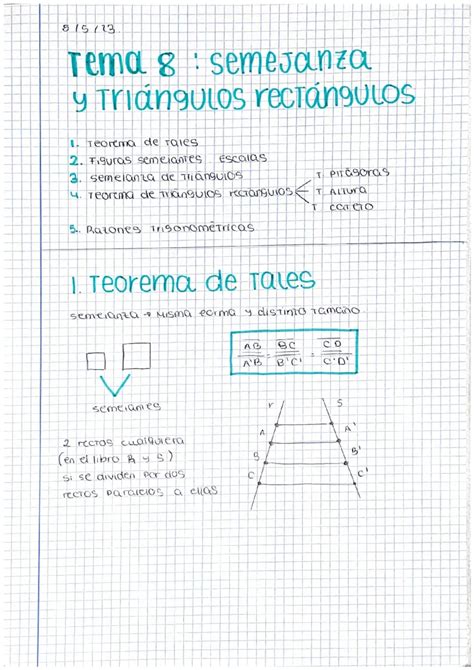 8/5/23
Tema 8 : semejanza
y Triángulos rectángulos
1. Teorema de Tales
2. Figuras semejantes Escalas
3. semejanza de Triángulos
4. Teorema de Triángulos rectángulos < T. Pitágoras
T. Altura
T cateto
5. Razones Trigonométricas
1. Teorema de Tales
semejanza → misma forma y distinto tamaño
AB/A'B' = BC/B'C' = CD/C'D'
semejantes
r s
A A'
B B'
C C'
2 rectas cualquiera
(en el libro R y S)
si se dividen por dos
rectas paralelas a ellas